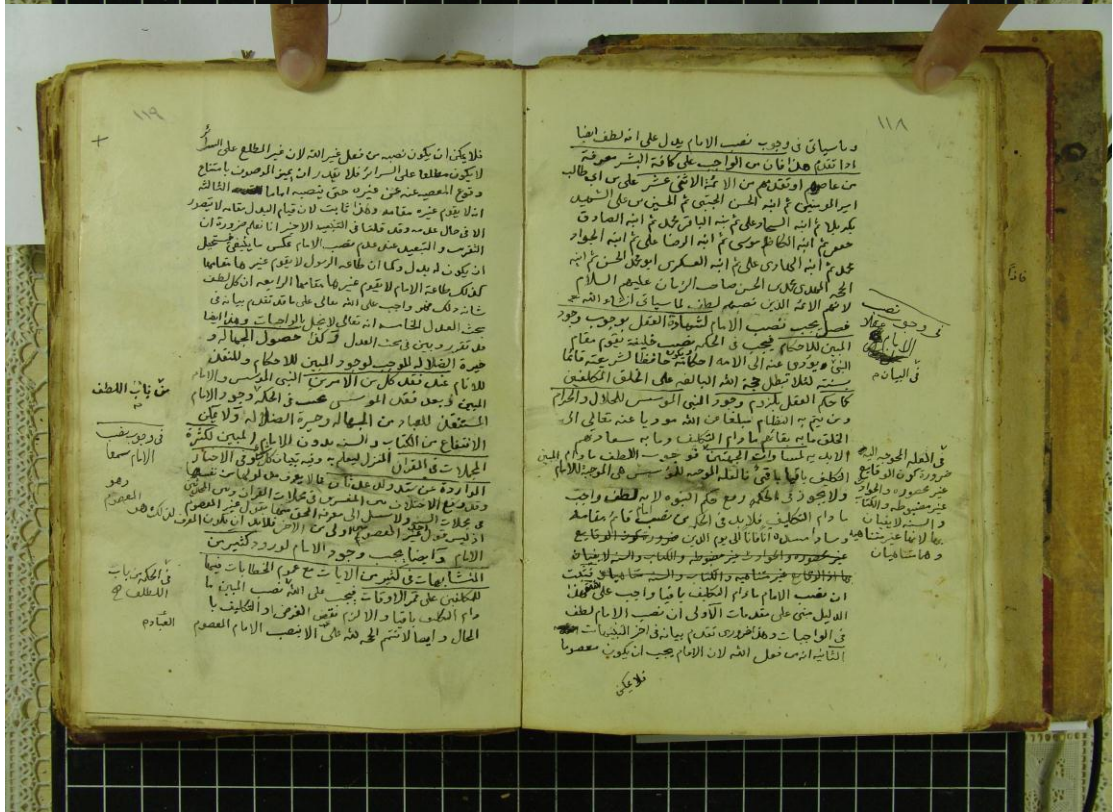 ١١٨
وما سياتي في وجوب نصب الامام يدل على انه لطف ايضا
اذا تقدم هذا فان من الواجب على كافة البشر معرفة
من عاصرهم او تقدمهم من الائمة الاثني عشر علي بن ابي طالب
امير المومنين ثم ابنه الحسن المجتبى ثم الحسين بن علي الشهيد
بكربلا ثم ابنه السجاد علي ثم ابنه الباقر محمد ثم ابنه الصادق
جعفر ثم ابنه الكاظم موسى ثم ابنه الرضا علي ثم ابنه الجواد
محمد ثم ابنه الهادي علي ثم ابنه العسكري ابو محمد الحسن ثم ابنه
الحجة المهدي محمد بن الحسن صاحب الزمان عليهم السلام
لانهم الائمة الذين نصبهم لما سياتي انشاء الله
فصل يجب نصب الامام لشهادة العقل بوجوب وجود
المبين للاحكام فيجب في الحكمة نصب خليفة يقوم مقام
النبي ويؤدي عنه الى الامة احكامه حافظا لشريعته قائما
بسنته لئلا تبطل حجة الله البالغة على الخلق المكلفين
كما حكم العقل بلزوم وجود النبي الموسس للحلال والحرام
ومن يتم به النظام مبلغا عن الله موديا عنه تعالى الى
الخلق ما به بقائهم ما دام التكليف وما به سعادتهم
الابدية فوجوب اللطف ما دام
التكليف باقيا باق فالعلة الموجبة للموسس هي الموجبة للامام
ولا يجوز في الحكمة رفع حكم النبوة لانه لطف واجب
ما دام التكليف فلابد في الحكمة من نصب امام قائم مقامه
وساد مسده انا فانا الى يوم الدين ضرورة كون الوقايع
غير محصورة والحوادث غير مضبوطة والكتاب والسنة لا يفيان
بها اذ الوقايع غير متناهية والكتاب والسنة متناهيان فثبت
ان نصب الامام ما دام التكليف باقيا واجب على الله
الدليل مبني على مقدمات الاولى ان نصب الامام لطف
في الواجبات وهذا ضروري تقدم بيانه في اخر التنبيهات
الثانية انه من فعل الله لان الامام يجب ان يكون معصوما
فلا يمكن
في وجوب نصب
الامام عقلا
في البيان
في العلة المحوجة اليه
ضرورة كون الوقايع
غير محصورة والحوادث
غير مضبوطة والكتاب
والسنة لا يفيان
بها لانها غير متناهية
وهما متناهيان
فاذا
١١٩
فلا يمكن ان يكون نصبه من فعل غير الله لان غير المطلع على السرائر
لا يكون مطلعا على السرائر فلا يقدر ان يميز الموصوف بامتناع
وقوع المعصية عنه عن غيره حتى ينصبه اماما الثالثة
انه لا يقوم غيره مقامه وهذا ثابت لان قيام البدل مقامه لا يتصور
الا في حال عدمه وقد قلنا في التنبيه الاخير انا نعلم ضرورة ان
التقريب والتبعيد عند عدم نصب الامام عكس ما ينبغي فيستحيل
ان يكون له بدل وكما ان طاعة الرسول لا يقوم غيرها مقامها
كذلك طاعة الامام لا يقوم غيرها مقامها الرابعة ان كل لطف
شانه ذلك فهو واجب على الله تعالى على ما قد تقدم بيانه في
بحث العدل الخامسة انه تعالى لا يخل بالواجبات وهذا ايضا
قد تقرر وبين في بحث العدل وكذا حصول الجهالة و
حيرة الضلالة الموجب لوجود المبين للاحكام والمنقذ
للانام عند فقد كل من الامرين النبي الموسس والامام
المبين فبعد فقد الموسس يجب في الحكمة وجود الامام
المستنقذ للعباد من الجهالة وحيرة الضلالة ولا يمكن
الانتفاع من الكتاب والسنة بدون الامام المبين لكثرة
المجملات في القران المنزل ليعلم به وفيه تبيان كل شيء وفي الاخبار
وقد وقع الاختلاف بين المفسرين في مجملات القران وبين المحدثين
في مجملات السنة ولا سبيل الى معرفة الحق منهما سوى قول غير المعصوم
الامام وايضا يجب وجود الامام لورود كثير من
المتشابهات في كثير من الايات مع عموم الخطابات فيها
للمكلفين على ممر الاوقات فيجب على الله نصب المبين ما
دام التكليف باقيا والا لزم نقض الغرض او التكليف با
المحال وايضا لا تتم الحجة لله على الا بنصب الامام المعصوم
من باب اللطف
في وجوب نصب
الامام سمعا
وهو
المعصوم
في الحكمة من باب
اللطف
العباد